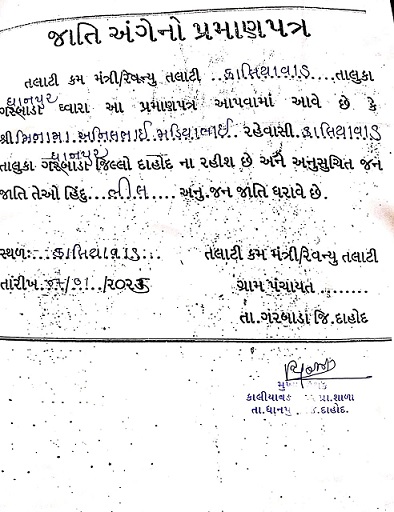 જાતિ અંગેનો પ્રમાણપત્ર
તલાટી કમ મંત્રી/રેવન્યુ તલાટી ..કાલિયાવાડ....તાલુકા
ધાનપુર
ગરબાડા ધ્વારા આ પ્રમાણપત્ર આપવામાં આવે છે કે
શ્રી મિનામા અનિલભાઈ મડિયાભાઈ.. રહેવાસી.કાલિયાવાડ
ધાનપુર
તાલુકા ગરબાડા જિલ્લો દાહોદ ના રહીશ છે અને અનુસુચિત જન
જાતિ તેઓ હિંદુ....ભીલ.... અનુ.જન જાતિ ધરાવે છે.
સ્થળઃ...કાલિયાવાડ... તલાટી કમ મંત્રી/રેવન્યુ તલાટી
તારીખ /૦૧../૨૦૨ ગ્રામ પંચાયત ........
તા.ગરબાડા જિ.દાહોદ
કાલીયાવડ પ્રા.શાળા
તા.ધાનપુ દાહોદ.